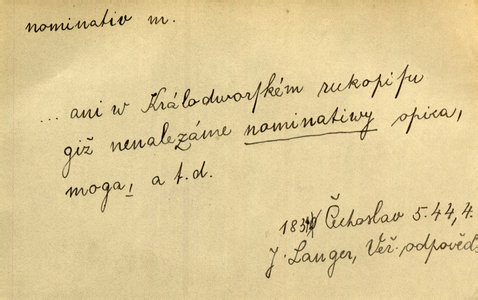 nominativ m.
... ani w Králodworſkém rukopiſu
giž nenalezáme nominatiwy opica,
moga, a t.d.
Čechoslav 5.44,4.
J. Langer, Veř. odpověď